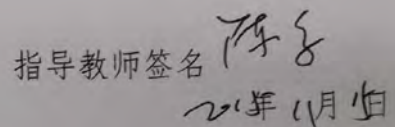 指导教师签名 陈
2015年11月15日